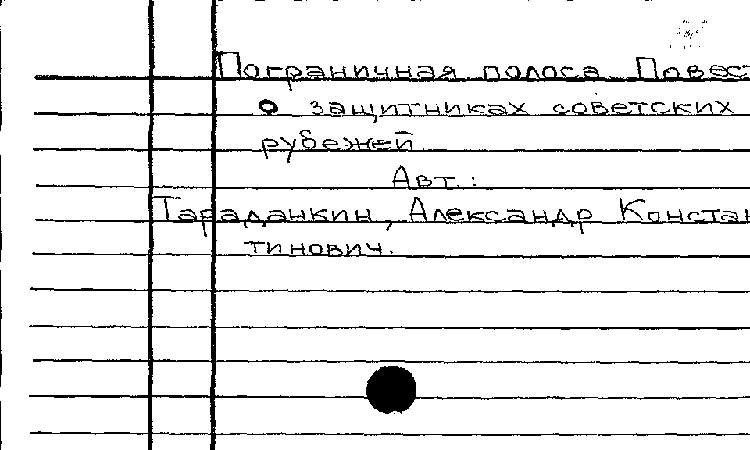 Пограничная полоса. Повест
о защитниках советских
рубежей.
Авт.:
Тараданкин, Александр Констан
тинович.